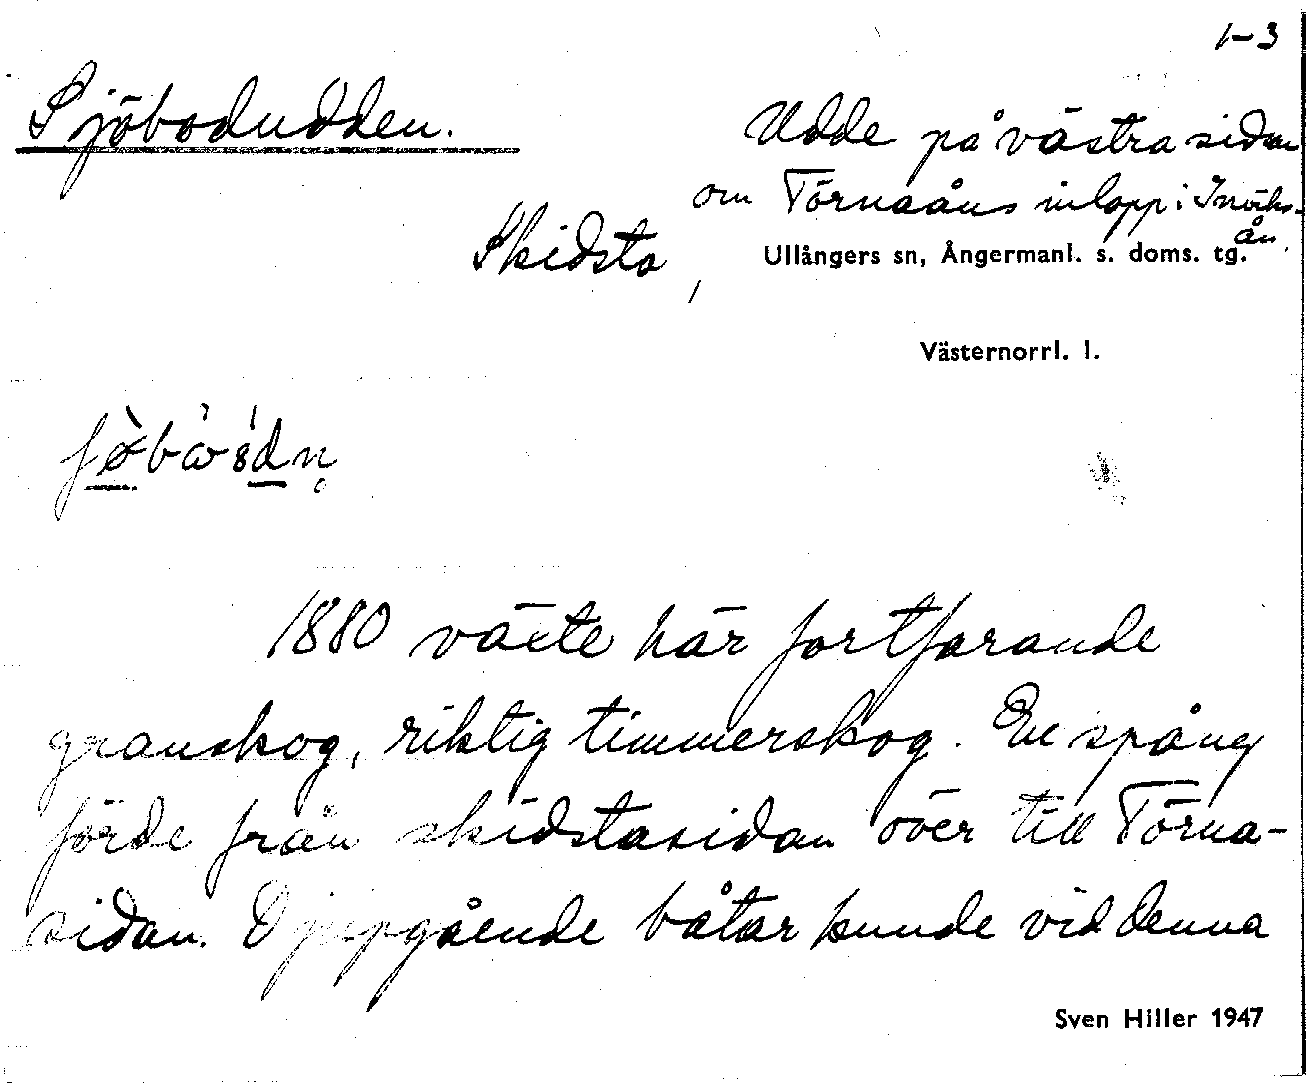 1-3
Sjöbodudden.
Udde på västra sidan
om Törnaåns inlopp i Inviks-
ån.
Skidsta,
Ullångers sn, Ångermanl. s. doms. tg.
Västernorrl. l.
1880 växte här fortfarande
granskog, riktig timmerskog. En spång
förde från skidstasidan över till Törna-
sidan. Djupgående båtar kunde vid denna
Sven Hiller 1947